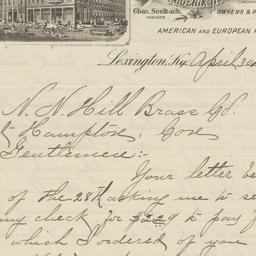 PHOENIX
Chas. Seelbach,
MANAGER.
OWNERS & P
AMERICAN AND EUROPEAN P
Lexington, Ky. April 30
N. N. Hill Brass Co.
Hampton, Conn
Gentlemen:-
Your letter be
of the 28th asking me to se
my check for $2.29 to pay f
which I ordered of you